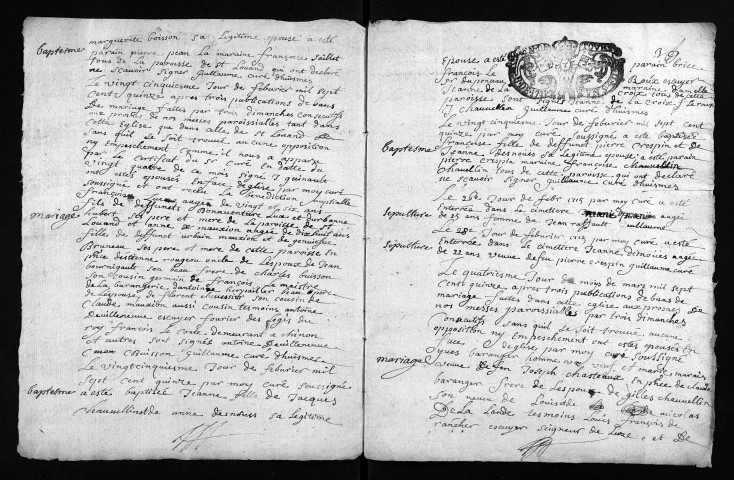 marguerite boisson sa legitime epouse a este
parain pierre jean La maraine françoise Saillet
tous de La paroisse de St Louand qui ont declaré
ne scavoir signer Guillaume curé dhuismes
Baptesme
Le vingt cinquiesme Jour de febvrier mil sept
Cent quinze apres trois publications de bans
De mariage faites par trois dimanches consecutifs
aux prosnes de nos messes paroissialles tant dans
Cette Eglise que dans celle de St Louand
sans quil se soit trouvé aucune opposition
ny empeschement comme il nous a apparu
par Le certificat du Sr curé en datte du
vingt quatre de ce mois signé quinault
ont estés epousés en face deglise par moy curé
soussigné et ont receu La benediction nuptialle
mariage
françois aagé de vingt six ans
fils de deffunts Bonaventure et durbanne
hubert ses pere et mere de La paroisse de St
Louand et anne mauxion aagée de dix huit ans
fille de deffunt urbain mauxion et de
Bruneau ses pere et mere de cette paroisse en
phce destienne rougeou oncle de Lespoux de Jean
bournigault son beau frere de charles buisson
son cousin germain de françois La maistre
De La barangerie dantoine beau pere
de Lespouse, de florent son cousin de
Claude mauxion aussi cousin tesmoins antoine
Devilleneuve escuyer fourier des Logis du
roy françois Le Conte demeurant a chinon
et autres sont signés antoine Devilleneuve
Buisson Guillaume curé dhuismes
Le vingtcinquiesme Jour de febvrier mil
sept cent quinze par moy curé soussigné
baptesme
a esté baptisée Jeanne fille de Jacques
de anne desnoues sa Legitime
Epouse a esté parain brice
François Le Roux escuyer
sr du ponceau maraine damelle
Jeanne de La croix tous de cette
paroisse sont signés Jeanne de La croix f le roux
chauvellin Guillaume curé dhuismes
Le vingt cinquiesme Jour de febvrier mil sept cent
quinze par moy curé soussigné a esté baptisée
Baptesme
françoise fille de deffunt pierre crespin et de
Jeanne desnoues sa Legitime epouse a esté parain
pierre crespin maraine françoise
chauvellin tous de cette paroisse qui ont declaré
ne scavoir signer Guillaume curé dhuismes
sepulture
Le 26e Jour de febr 1715 par moy curé a esté
interrée dans Le cimetiere aagée
de 25 ans femme de Jean raffault Guillaume
sepulture
Le 28e Jour de febvrier 1715 par moy curé a este
interrée dans Le cimetiere Jeanne desnoues aagée
de 22 ans veuve de feu pierre crespin Guillaume curé
Le quatriesme Jour de mars mil sept
Cent quinze apres trois publications de bans de
mariage faites dans cette eglise aux prosnes de
nos messes paroissiales par trois dimanches
Consecutifs sans quil se soit trouvé aucune
opposition ny Empeschement ont estés epousés en
face deglise par moy curé soussigné
mariage
Jques baranger homme veuf et marie
veuve de feu Joseph chasteaux en phce de claude
baranger frere de Lespoux de gilles chauvellin
son neveu de Louis de nicolas
De La Londe tesmoins Louis françois de
rancher escuyer seigneur de et De